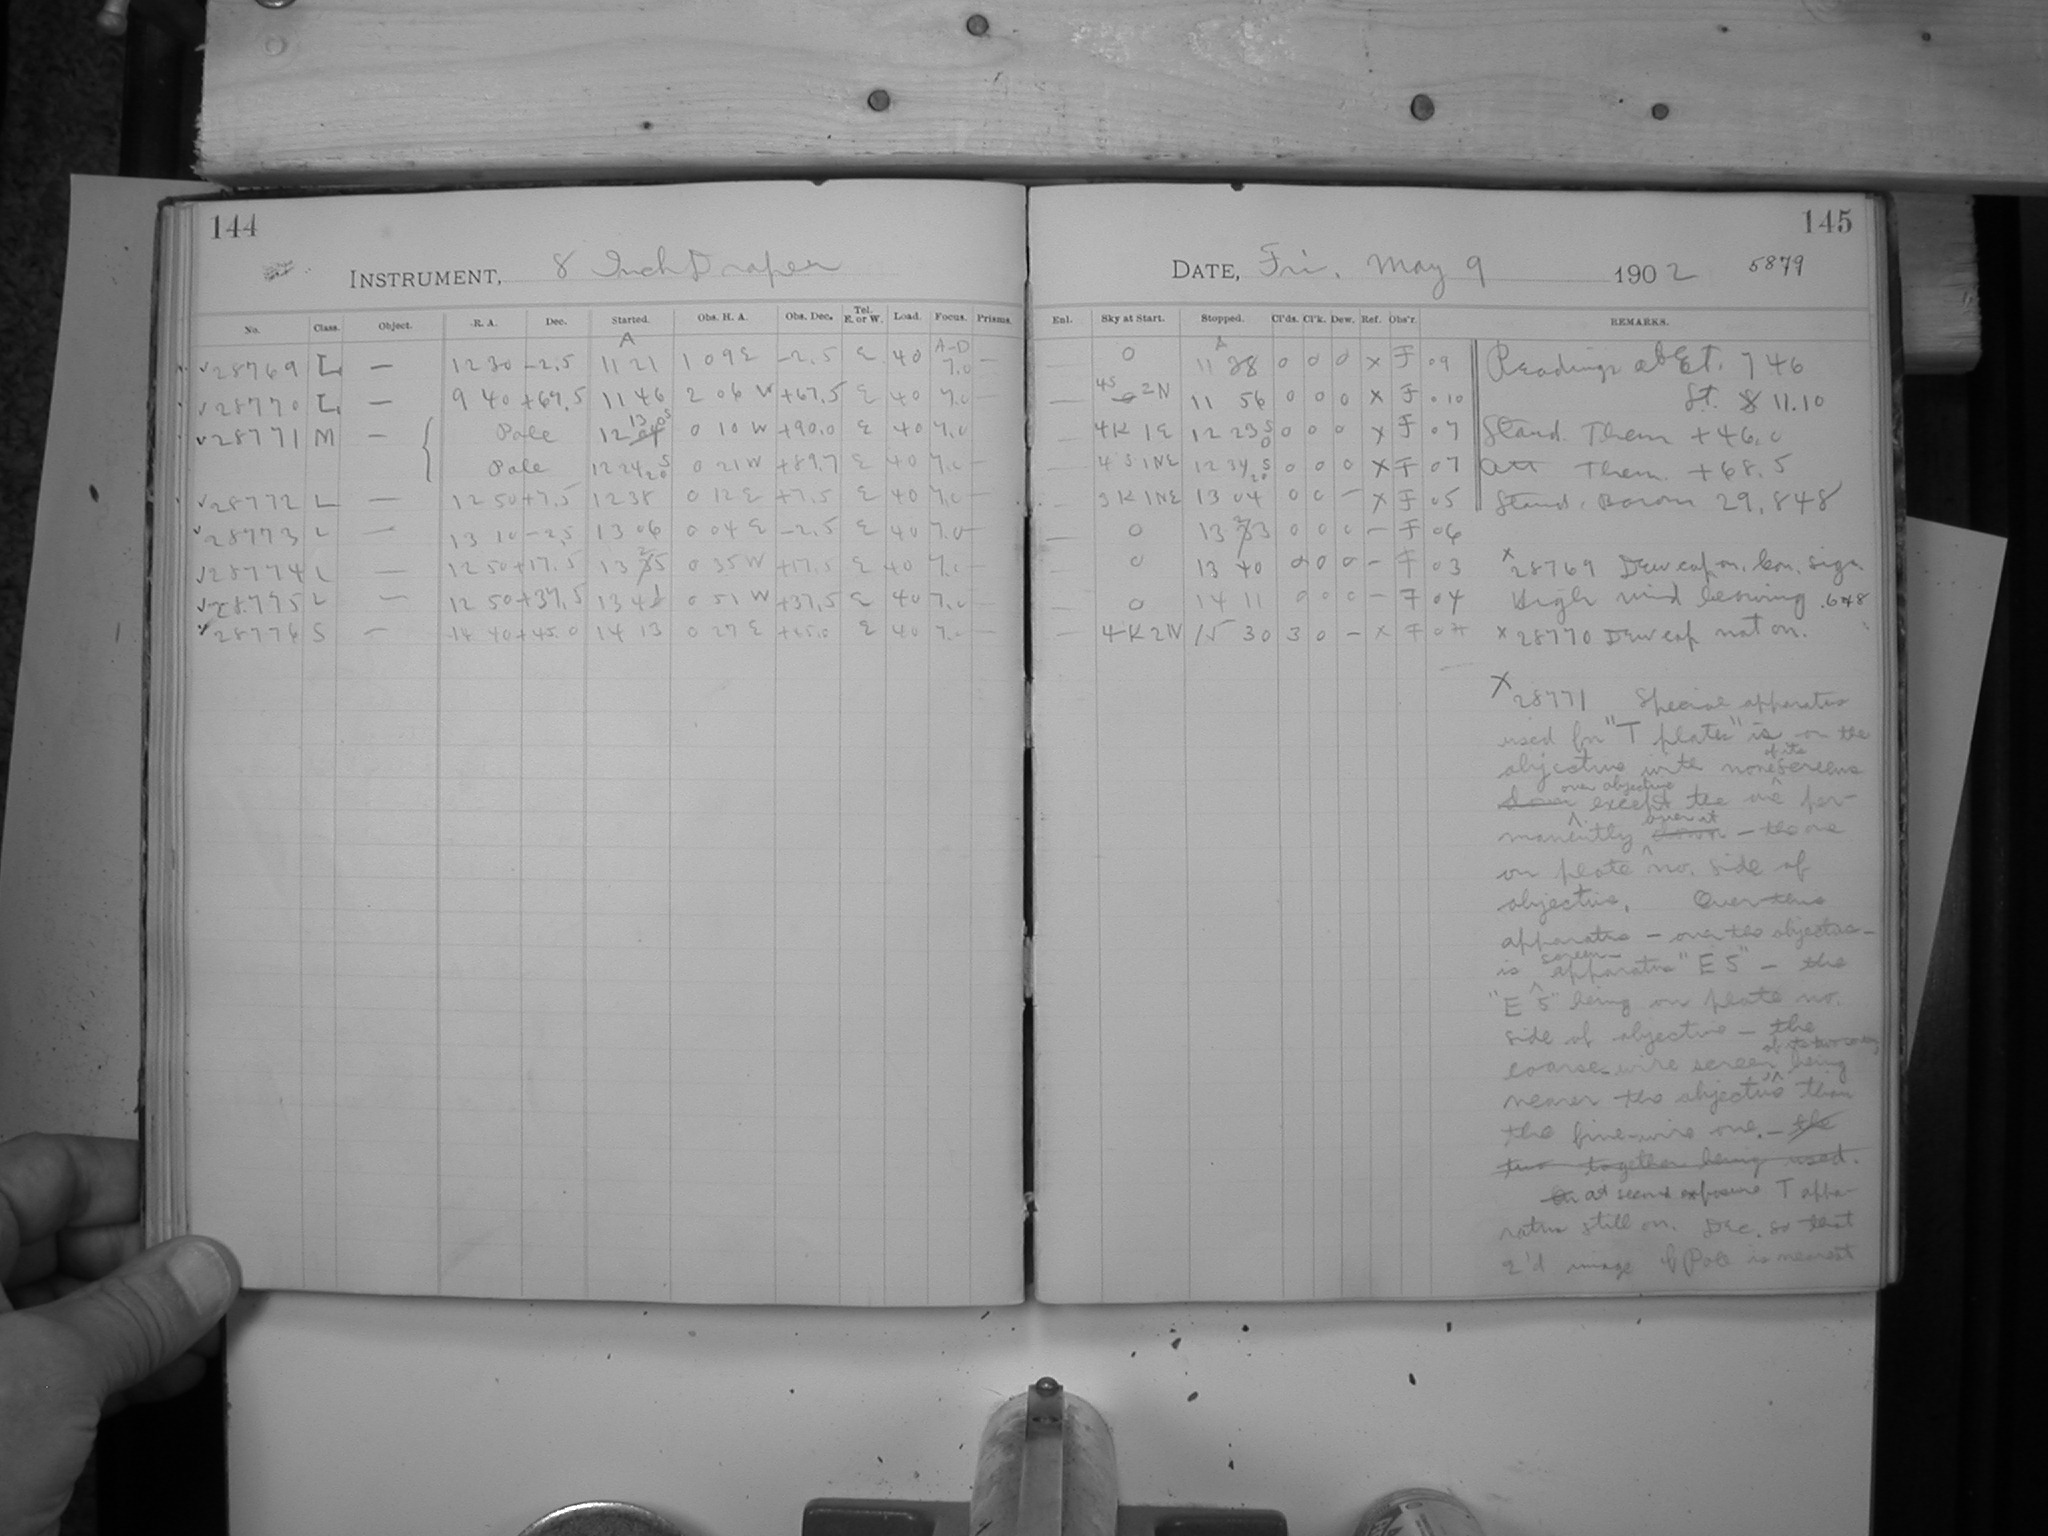 144
INSTRUMENT, 8 Inch Draper
No. Class. Object. R. A. Dec. Started. Obs. H. A. Obs. Dec. Tel. E. or W. Load. Focus. Prisms.
A A-D
28769 L — 12 30 -2.5 11 21 1 09 E -2.5 E 40 7.0 —
28770 L — 9 40 +67.5 11 46 2 06 W +67.5 E 40 7.0 —
28771 M — Pole 12 0 10 W +90.0 E 40 7.0
Pole 12 24 20 S 0 21 W +89.7 E 40 7.0 —
28772 L — 12 50 +7.5 12 38 0 12 E +7.5 E 40 7.0 —
28773 L — 13 10 -2.5 13 06 0 04 E -2.5 E 40 7.0 —
28774 L — 12 50 +17.5 13 25 0 35 W +17.5 E 40 7.0 —
28775 L — 12 50 +37.5 13 41 0 51 W +37.5 E 40 7.0 —
28776 S — 14 40 +45.0 14 13 0 27 E +45.0 E 40 7.0 —
145
DATE, Fri. May 9 1902 5879
Enl. Sky at Start. Stopped. Cl'ds. Cl'k. Dew. Ref. Obs'r. REMARKS.
A
— 0 11 38 0 0 0 x F 09
— 4S 2N 11 56 0 0 0 x F .10
— 4K 1E 12 23 0 S 0 0 0 x F 07
— 4 S 1NE 12 34 20 S 0 0 0 x F 07
— 3K 1NE 13 04 0 0 — x F 05
— 0 13 23 0 0 0 — F 06
— 0 13 40 0 0 0 — F 03
— 0 14 11 0 0 0 — F 04
— 4K 2N 15 30 3 0 — x F 04
Readings at 7 46
St. 11.10
Stand. Them +46.0
Att Them. +68.5
Stand. Barom 29,848
x 28769 Dew cap on. Con. sign.
High wind
x 28770 Dew cap not on.
X 28771 Special apparatus
used for "T plates" is on the
objective with none of its screens
down over objective except the one per-
manently down over it — the one
on plate no. side of
objective. Over this
apparatus — over the objective —
is screen-apparatus "E 5" — the
"E 5" being on plate no.
side of objective — the
coarse-wire screen of its two screens being
nearer the objective than
the fine-wire one. — the
two together being used.
On at second exposure T appa-
ratus still on. Dec. so that
2'd image of Pole is nearest